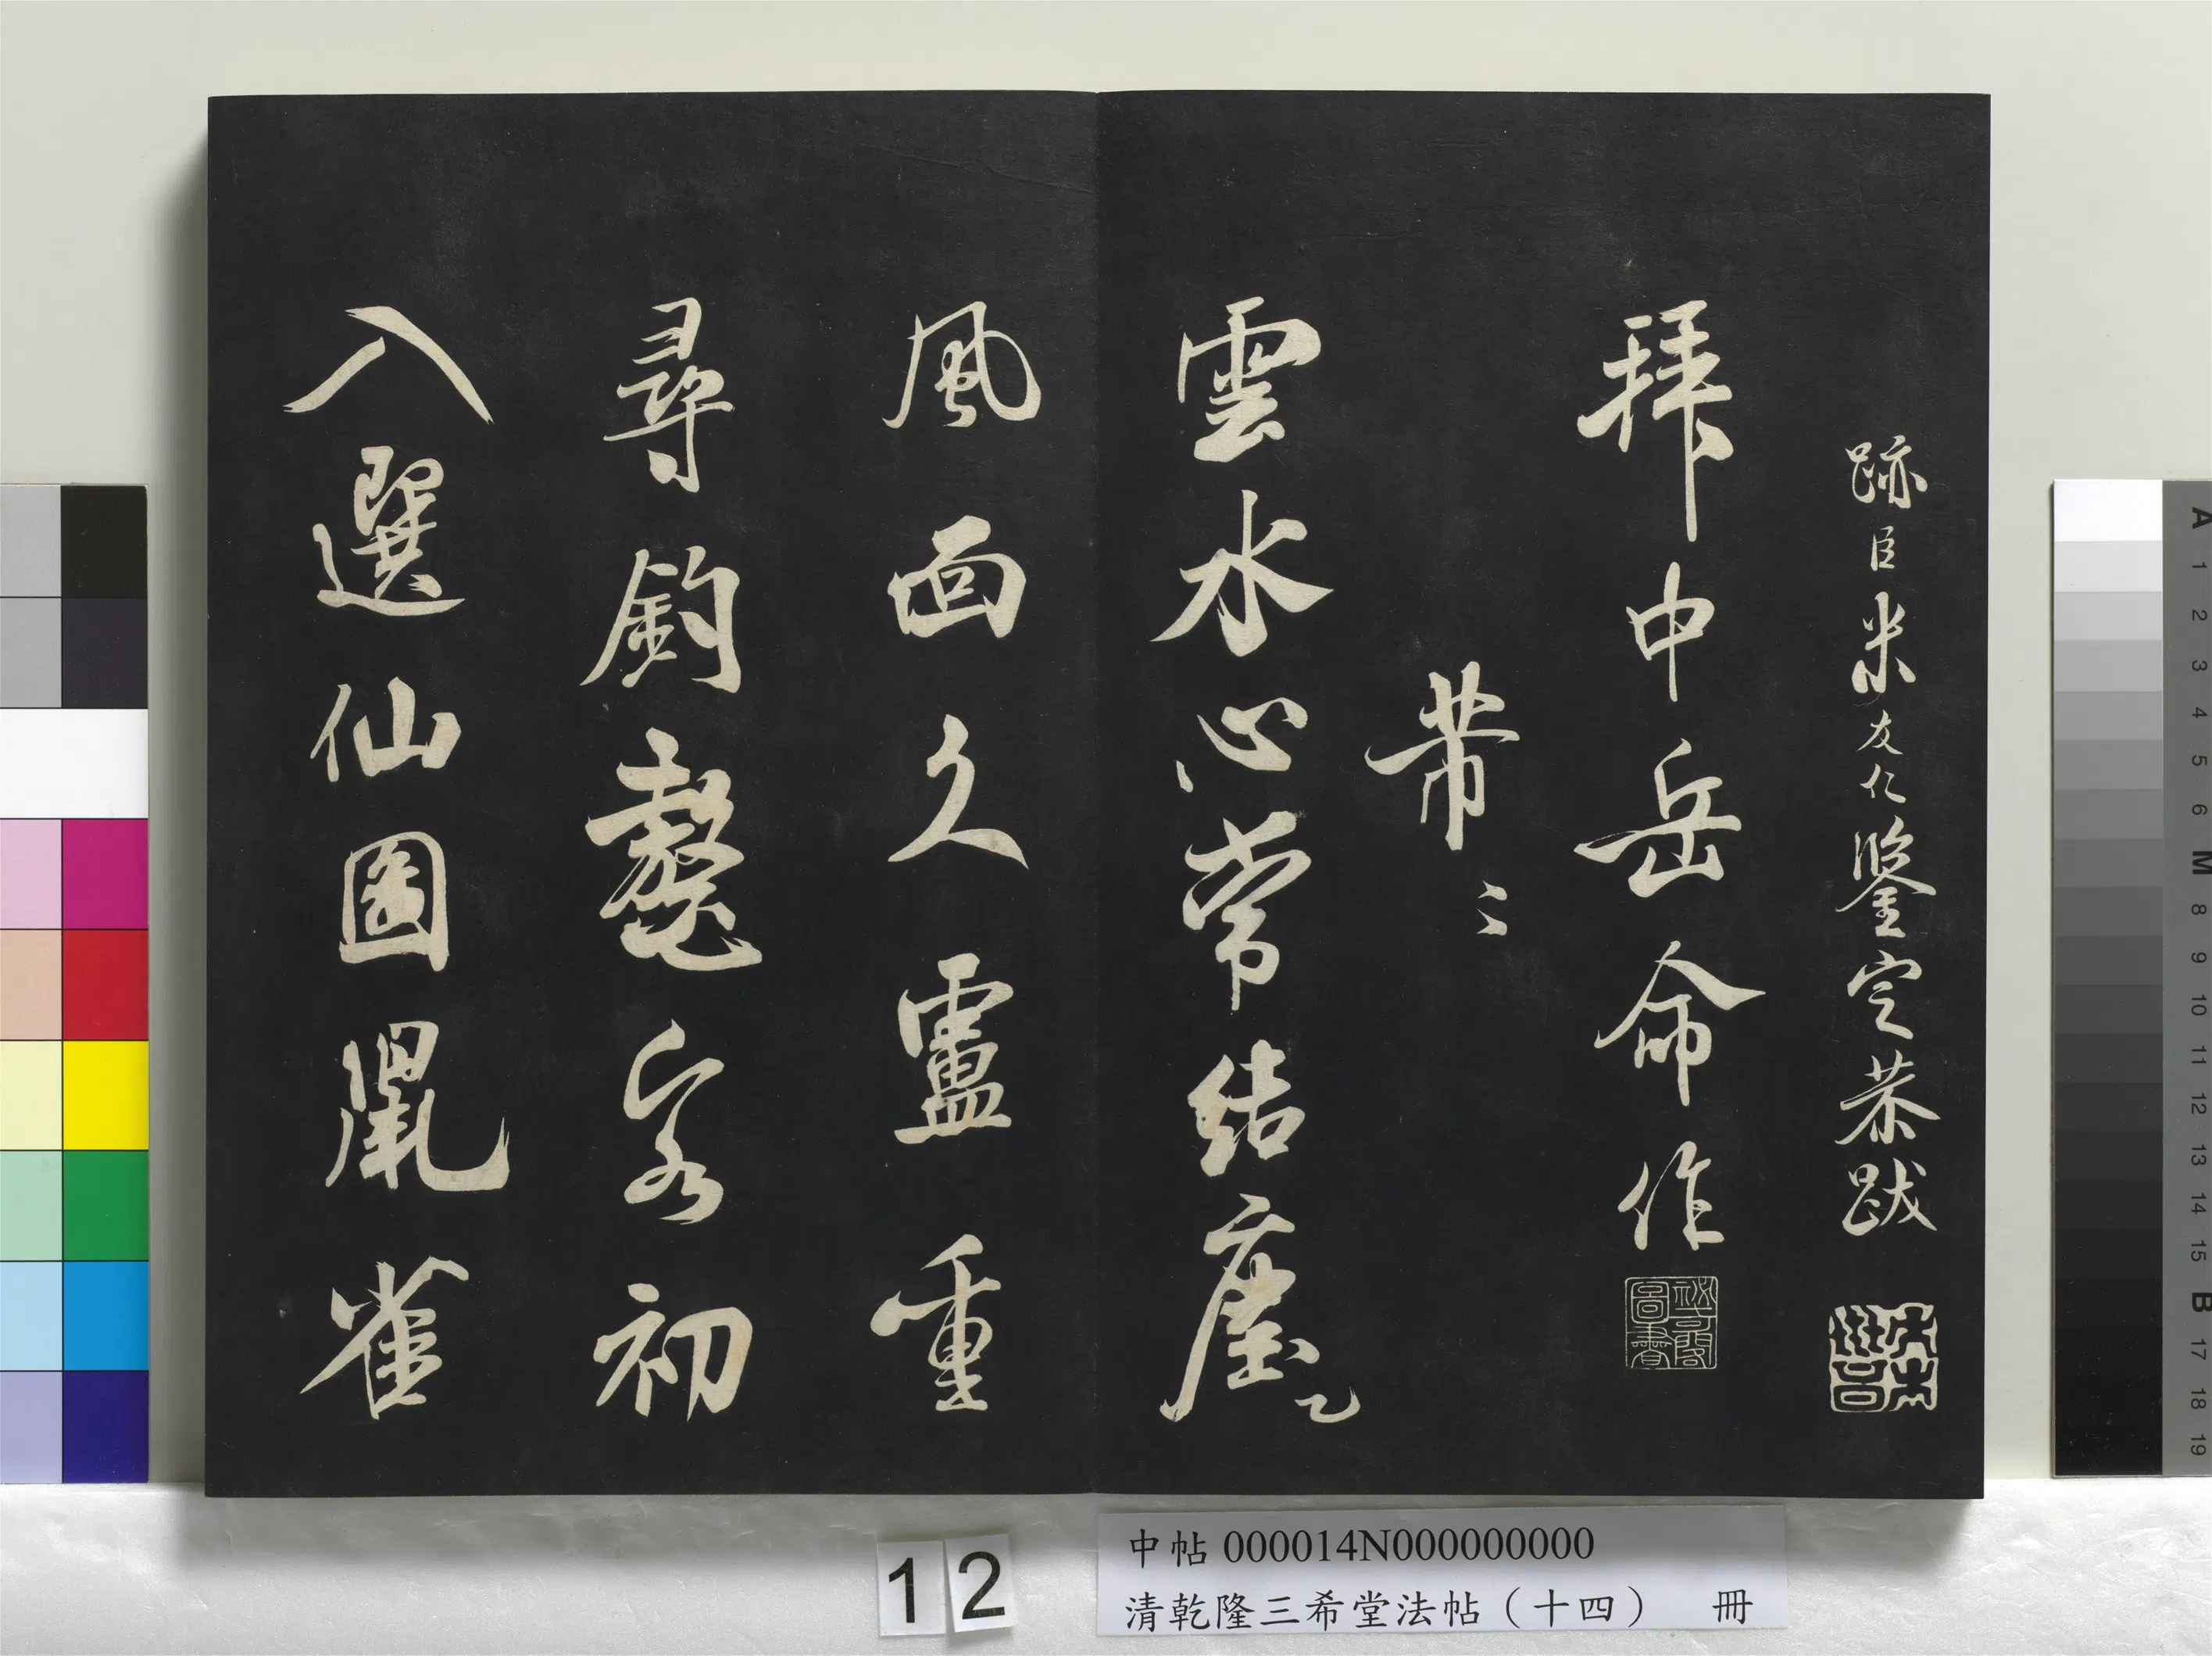 跡臣米友仁鑒定恭跋
拜中岳命作
芾〻
雲水心常結塵乙
風面久盧重
尋釣鼇客初
入選仙圖鼠雀
12
中帖000014N000000000
清乾隆三希堂法帖（十四） 冊
A 1 2 3 4 5 6 M 8 9 10 11 12 13 14 15 B 17 18 19